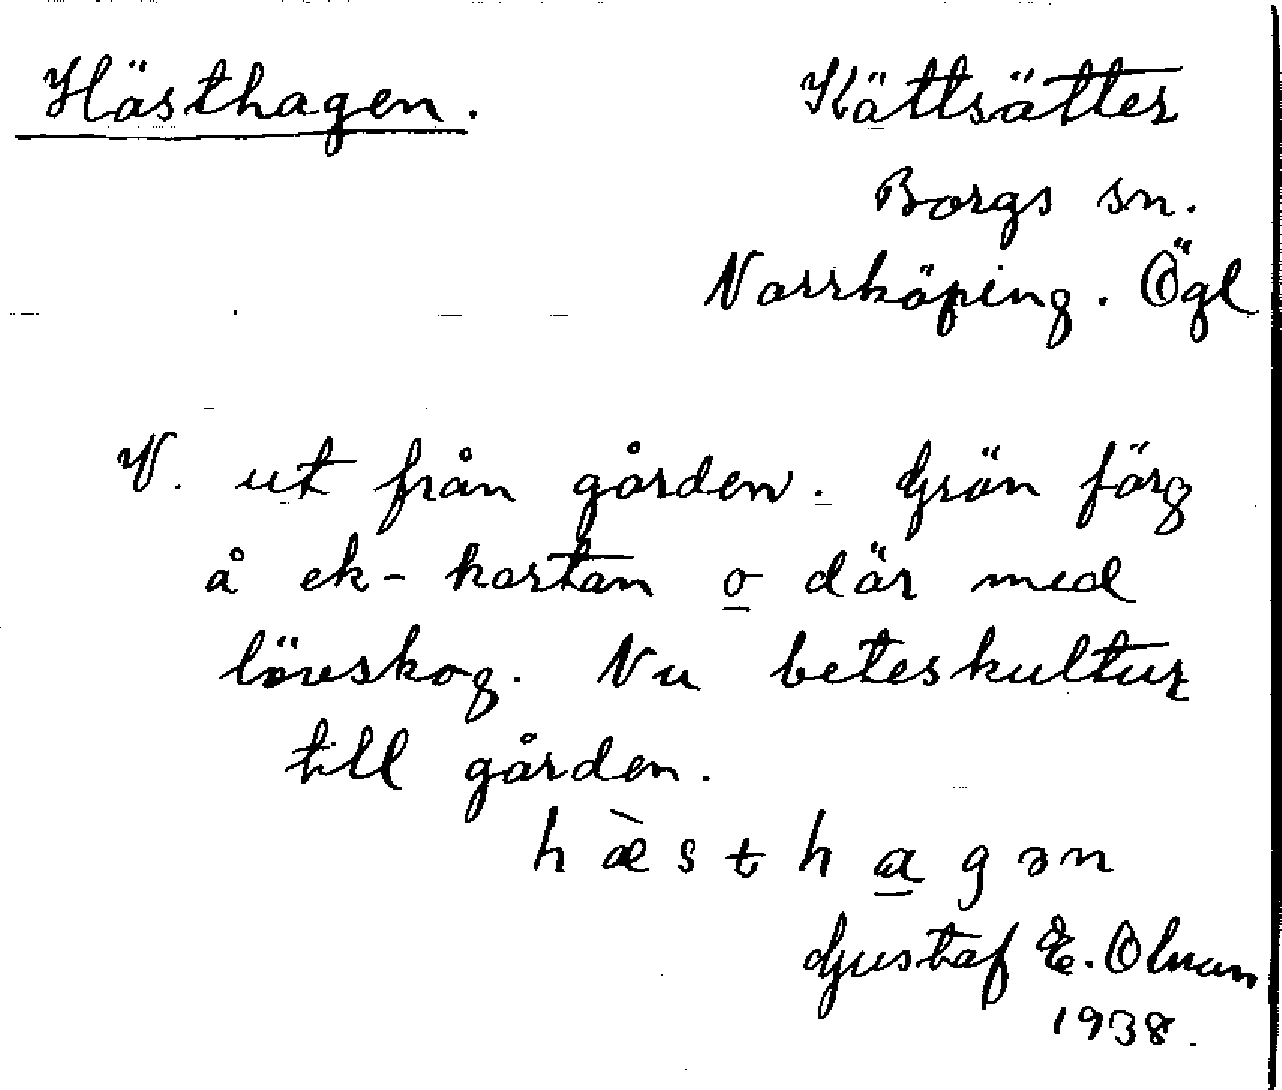 Hästhagen. Kättsätter
Borgs sn.
Norrköping. Ögl
V. ut från gården. Grön färg
å ek-kartan o där med
lövskog. Nu beteskultur
till gården.
hæ̀sthagən
Gustaf E. Olman
1938.